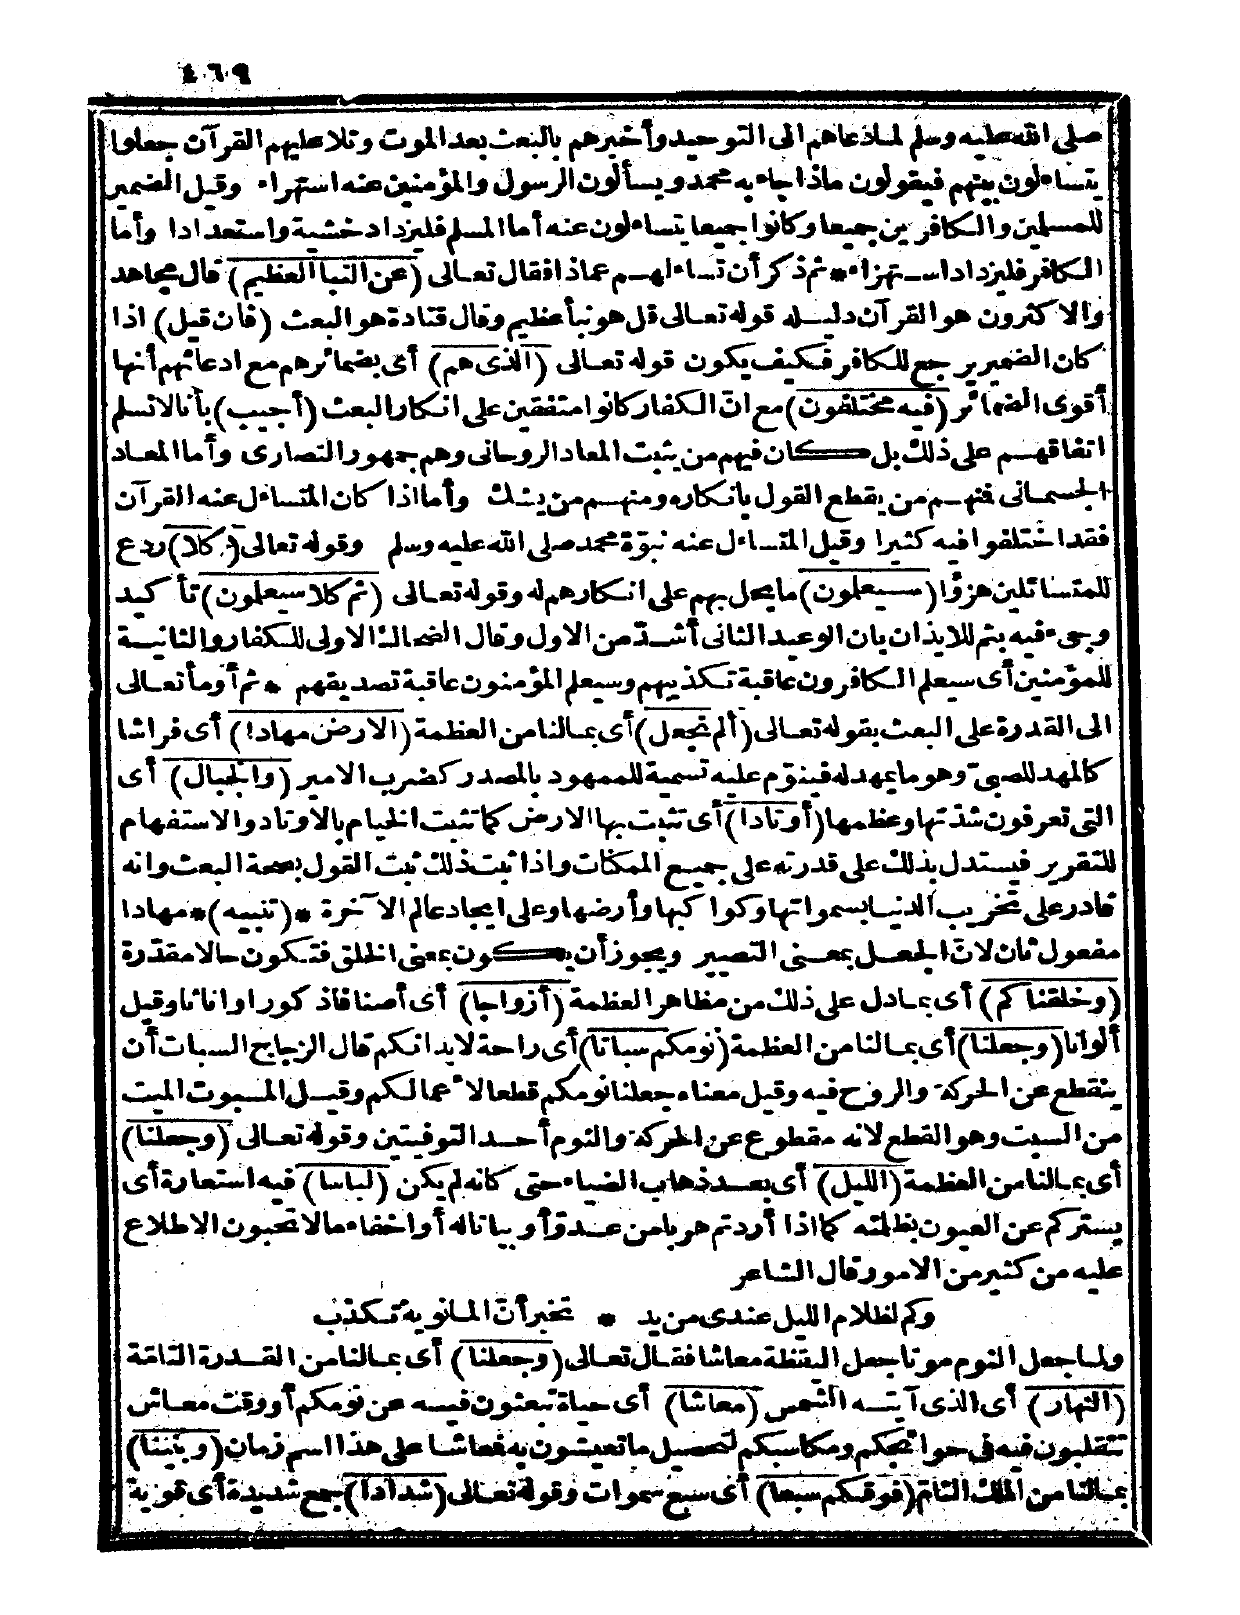 ٤٦٩
صلى الله عليه وسلم لما دعاهم الى التوحيد وأخبرهم بالبعث بعد الموت وتلا عليهم القرآن جعلوا
يتساءلون بينهم فيقولون ماذا جاء به محمد ويسألون الرسول والمؤمنين عنه استهزاء وقيل الضمير
للمسلمين والكافرين جميعا وكانوا جميعا يتساءلون عنه أما المسلم فليزداد خشية واستعدادا وأما
الكافر فليزداد استهزاء * ثم ذكر أن تساءلهم عماذا فقال تعالى (عن النبا العظيم) قال مجاهد
والاكثرون هو القرآن دليله قوله تعالى قل هو نبأ عظيم وقال قتادة هو البعث (فان قيل) اذا
كان الضمير يرجع للكافر فكيف يكون قوله تعالى (الذى هم) أى بضمائرهم مع ادعائهم أنها
أقوى الضمائر (فيه مختلفون) مع انّ الكفار كانوا متفقين على انكار البعث (أجيب) بأنا لانسلم
اتفاقهم على ذلك بل كان فيهم من يثبت المعاد الروحانى وهم جمهور النصارى وأما المعاد
الجسمانى فمنهم من يقطع القول بانكاره ومنهم من يشك وأما اذا كان المتساءل عنه القرآن
فقد اختلفوا فيه كثيرا وقيل المتساءل عنه نبوّة محمد صلى الله عليه وسلم وقوله تعالى (كلا) ردع
للمتسائلين هزؤا (سيعلمون) ما يحل بهم على انكارهم له وقوله تعالى (ثم كلا سيعلمون) تأكيد
وجىء فيه بثم للايذان بان الوعيد الثانى أشدّ من الاول وقال الضحاك الاولى للكفار والثانية
للمؤمنين أى سيعلم الكافرون عاقبة تكذيبهم وسيعلم المؤمنون عاقبة تصديقهم * ثم أومأ تعالى
الى القدرة على البعث بقوله تعالى (ألم نجعل) أى بمالنا من العظمة (الارض مهادا) أى فراشا
كالمهد للصبىّ وهو ما يمهد له فينوّم عليه تسمية للممهود بالمصدر كضرب الامير (والجبال) أى
التى تعرفون شدّتها وعظمها (أوتادا) أى تثبت بها الارض كما تثبت الخيام بالاوتاد والاستفهام
للتقرير فيستدل بذلك على قدرته على جميع الممكنات واذا ثبت ذلك ثبت القول بصحة البعث وانه
قادر على تخريب الدنيا بسمواتها وكواكبها وأرضها وعلى ايجاد عالم الآخرة * (تنبيه) * مهادا
مفعول ثان لانّ الجعل بمعنى التصيير ويجوز أن يكون بمعنى الخلق فتكون حالا مقدّرة
(وخلقناكم) أى بمادل على ذلك من مظاهر العظمة (أزواجا) أى أصنافا ذكورا واناثا وقيل
ألوانا (وجعلنا) أى بمالنا من العظمة (نومكم سباتا) أى راحة لابدانكم قال الزجاج السبات أن
ينقطع عن الحركة والروح فيه وقيل معناه جعلنا نومكم قطعا لاعمالكم وقيل المسبوت الميت
من السبت وهو القطع لانه مقطوع عن الحركة والنوم أحد التوفيتين وقوله تعالى (وجعلنا)
أى بمالنا من العظمة (الليل) أى بعد ذهاب الضياء حتى كانه لم يكن (لباسا) فيه استعارة أى
يستركم عن العيون بظلمته كما اذا أردتم هربا من عدوّ أو بياتا له أو اخفاء مالا تحبون الاطلاع
عليه من كثير من الامور قال الشاعر
وكم لظلام الليل عندى من يد * تخبر أنّ المانوية تكذب
ولما جعل النوم موتا جعل اليقظة معاشا فقال تعالى (وجعلنا) أى بمالنا من القدرة التامّة
(النهار) أى الذى آيته الشمس (معاشا) أى حياة تبعثون فيه عن نومكم أو وقت معاش
تتقلبون فيه فى حوائجكم ومكاسبكم لتحصيل ما تعيشون به فمعاشا على هذا اسم زمان (وبنينا)
بمالنا من الملك التامّ (فوقكم سبعا) أى سبع سموات وقوله تعالى (شدادا) جمع شديدة أى قوية